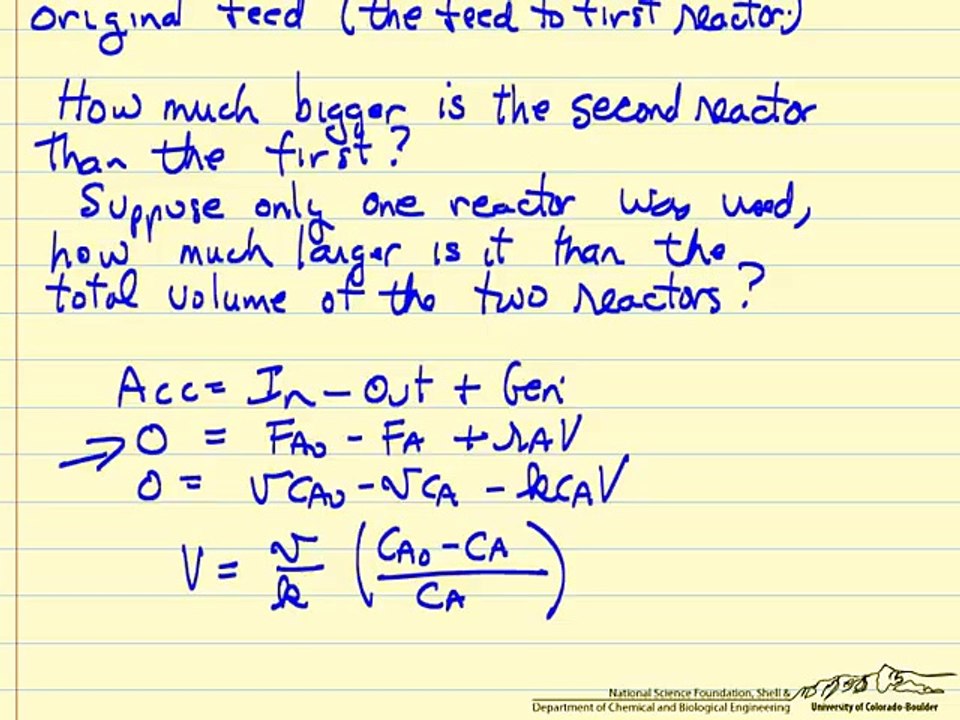 original feed (the feed to first reactor.)
How much bigger is the second reactor
than the first?
Suppose only one reactor was used,
how much larger is it than the
total volume of the two reactors?
Acc = In - Out + Gen
→ 0 = F_A₀ - F_A + r_A V
0 = v C_A₀ - v C_A - k C_A V
V = v/k ( (C_A₀ - C_A) / C_A )
National Science Foundation, Shell &
Department of Chemical and Biological Engineering
University of Colorado-Boulder